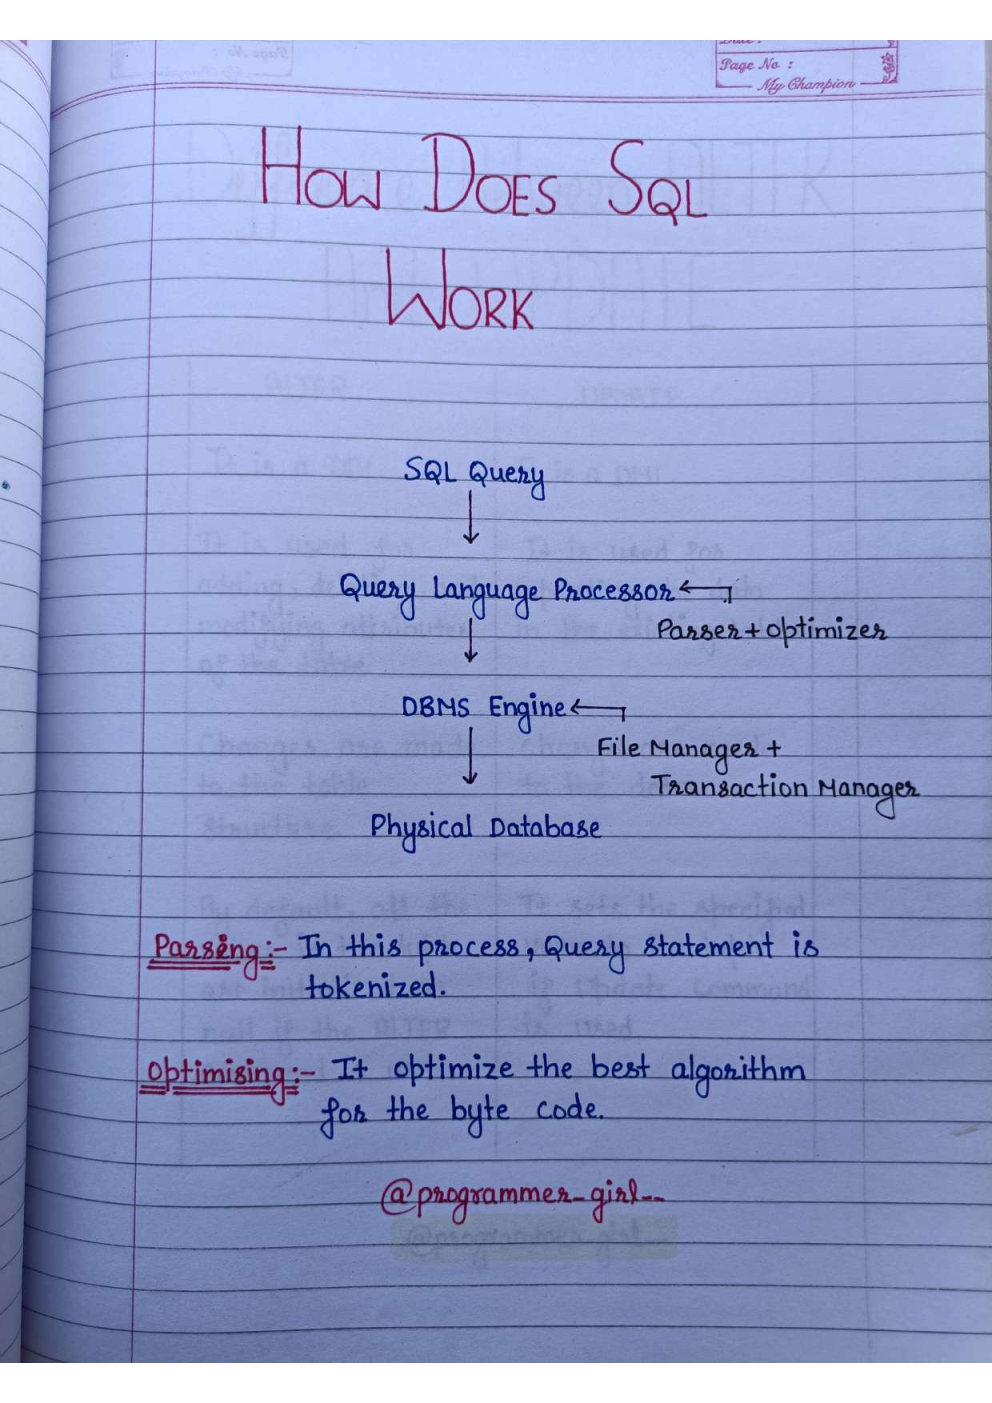 Page No :
My Champion
HOW DOES SQL
WORK
SQL Query
Query Language Processor
Parser + optimizer
DBMS Engine
File Manager +
Transaction Manager
Physical Database
Parsing :- In this process, Query statement is
tokenized.
Optimising :- It optimize the best algorithm
for the byte code.
@programmer_girl__